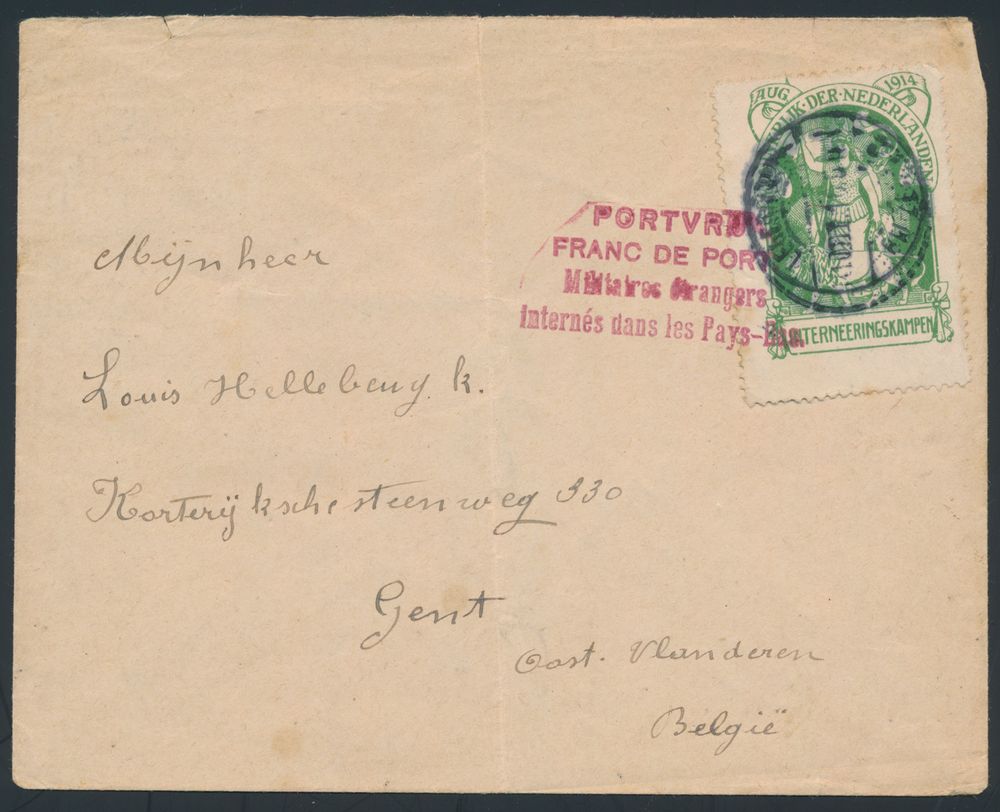 AUG. 1914
DER·NEDERLANDEN
INTERNEERINGSKAMPEN
PORTVRIJ
FRANC DE PORT
Militaires étrangers
internés dans les Pays-Bas.
Mijnheer
Louis k.
Korterijkschesteenweg 330
Gent
Oost. Vlanderen
België